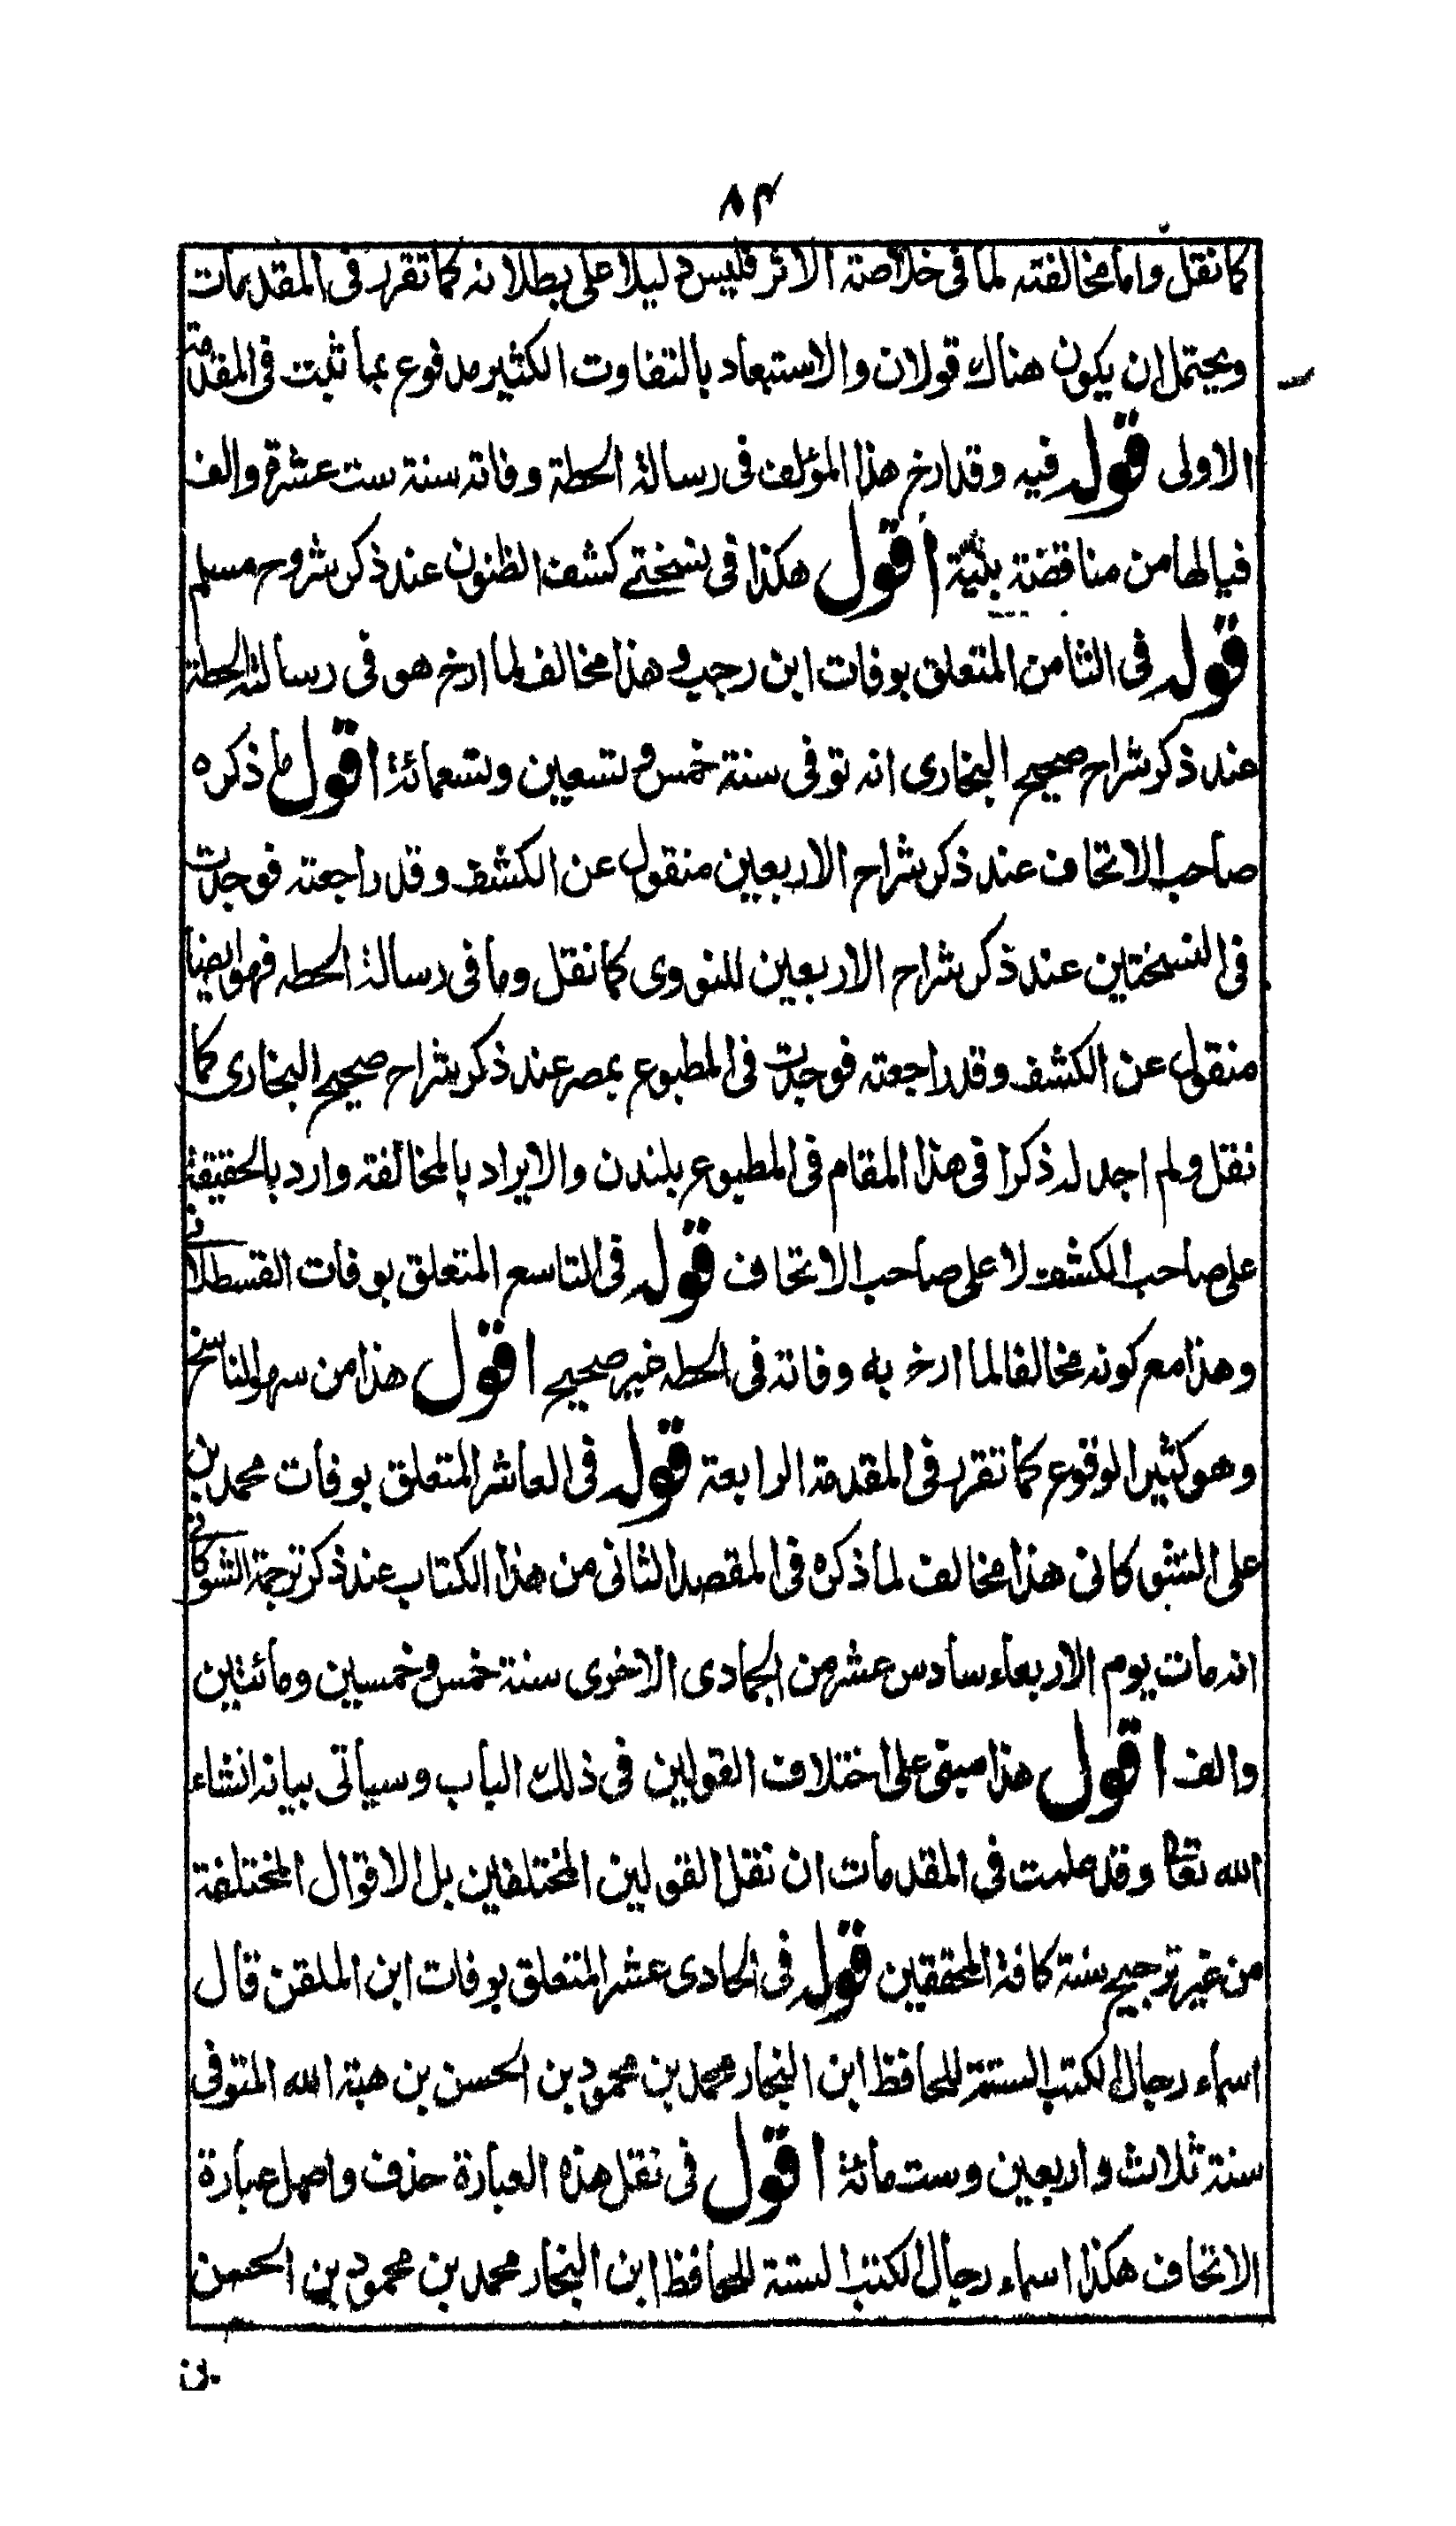 ٨٣
كما نقل واما مخالفته لما فى خلاصة الاثر فليس دليلا على بطلانه كما تقرر فى المقدمات
ويحتمل ان يكون هناك قولان والاستبعاد بالتفاوت الكثير مدفوع بما ثبت فى المقدمة
الاولى قوله فيه وقد ارخ هذا المؤلف فى رسالة الحطة وفاته سنة ست عشرة والف
فيالها من مناقضة بينة اقول هكذا فى نسختے كشف الظنون عند ذكر شروح مسلم
قوله فى الثامن المتعلق بوفات ابن رجب وهذا مخالف لما ارخ هو فى رسالة الحطة
عند ذكر شراح صحيح البخارى انه توفى سنة خمس وتسعين وتسعمائة اقول ما ذكره
صاحب الاتحاف عند ذكر شراح الاربعين منقول عن الكشف وقد راجعته فوجدت
فى النسختين عند ذكر شراح الاربعين للنووى كما نقل وما فى رسالة الحطه فهو ايضا
منقول عن الكشف وقد راجعته فوجدت فى المطبوع بمصر عند ذكر شراح صحيح البخارى كما
نقل ولم اجد له ذكرا فى هذا المقام فى المطبوع بلندن والايراد بالمخالفة وارد بالحقيقة
على صاحب الكشف لا على صاحب الاتحاف قوله فى التاسع المتعلق بوفات القسطلانى
وهذا مع كونه مخالفا لما ارخ به وفاته فى الحطه غير صحيح اقول هذا من سهو الناسخ
وهو كثير الوقوع كما تقرر فى المقدمة الرابعة قوله فى العاشر المتعلق بوفات محمد بن
على الشوكانى هذا مخالف لما ذكره فى المقصد الثانى من هذا الكتاب عند ذكر ترجمة الشوكانى
انه مات يوم الاربعاء سادس عشر من الجمادى الاخرى سنة خمس وخمسين ومائتين
والف اقول هذا مبنى على اختلاف القولين فى ذلك الباب وسياتى بيانه انشاء
الله تعالى وقد علمت فى المقدمات ان نقل القولين المختلفين بل الاقوال المختلفة
من غير ترجيح سنة كافة المحققين قوله فى الحادى عشر المتعلق بوفات ابن الملقن قال
اسماء رجال الكتب الستة للحافظ ابن النجار محمد بن محمود بن الحسن بن هبة الله المتوفى
سنة ثلاث واربعين وست مائة اقول فى نقل هذه العبارة حذف واصل عبارة
الاتحاف هكذا اسماء رجال الكتب الستة للحافظ ابن النجار محمد بن محمود بن الحسن
بن